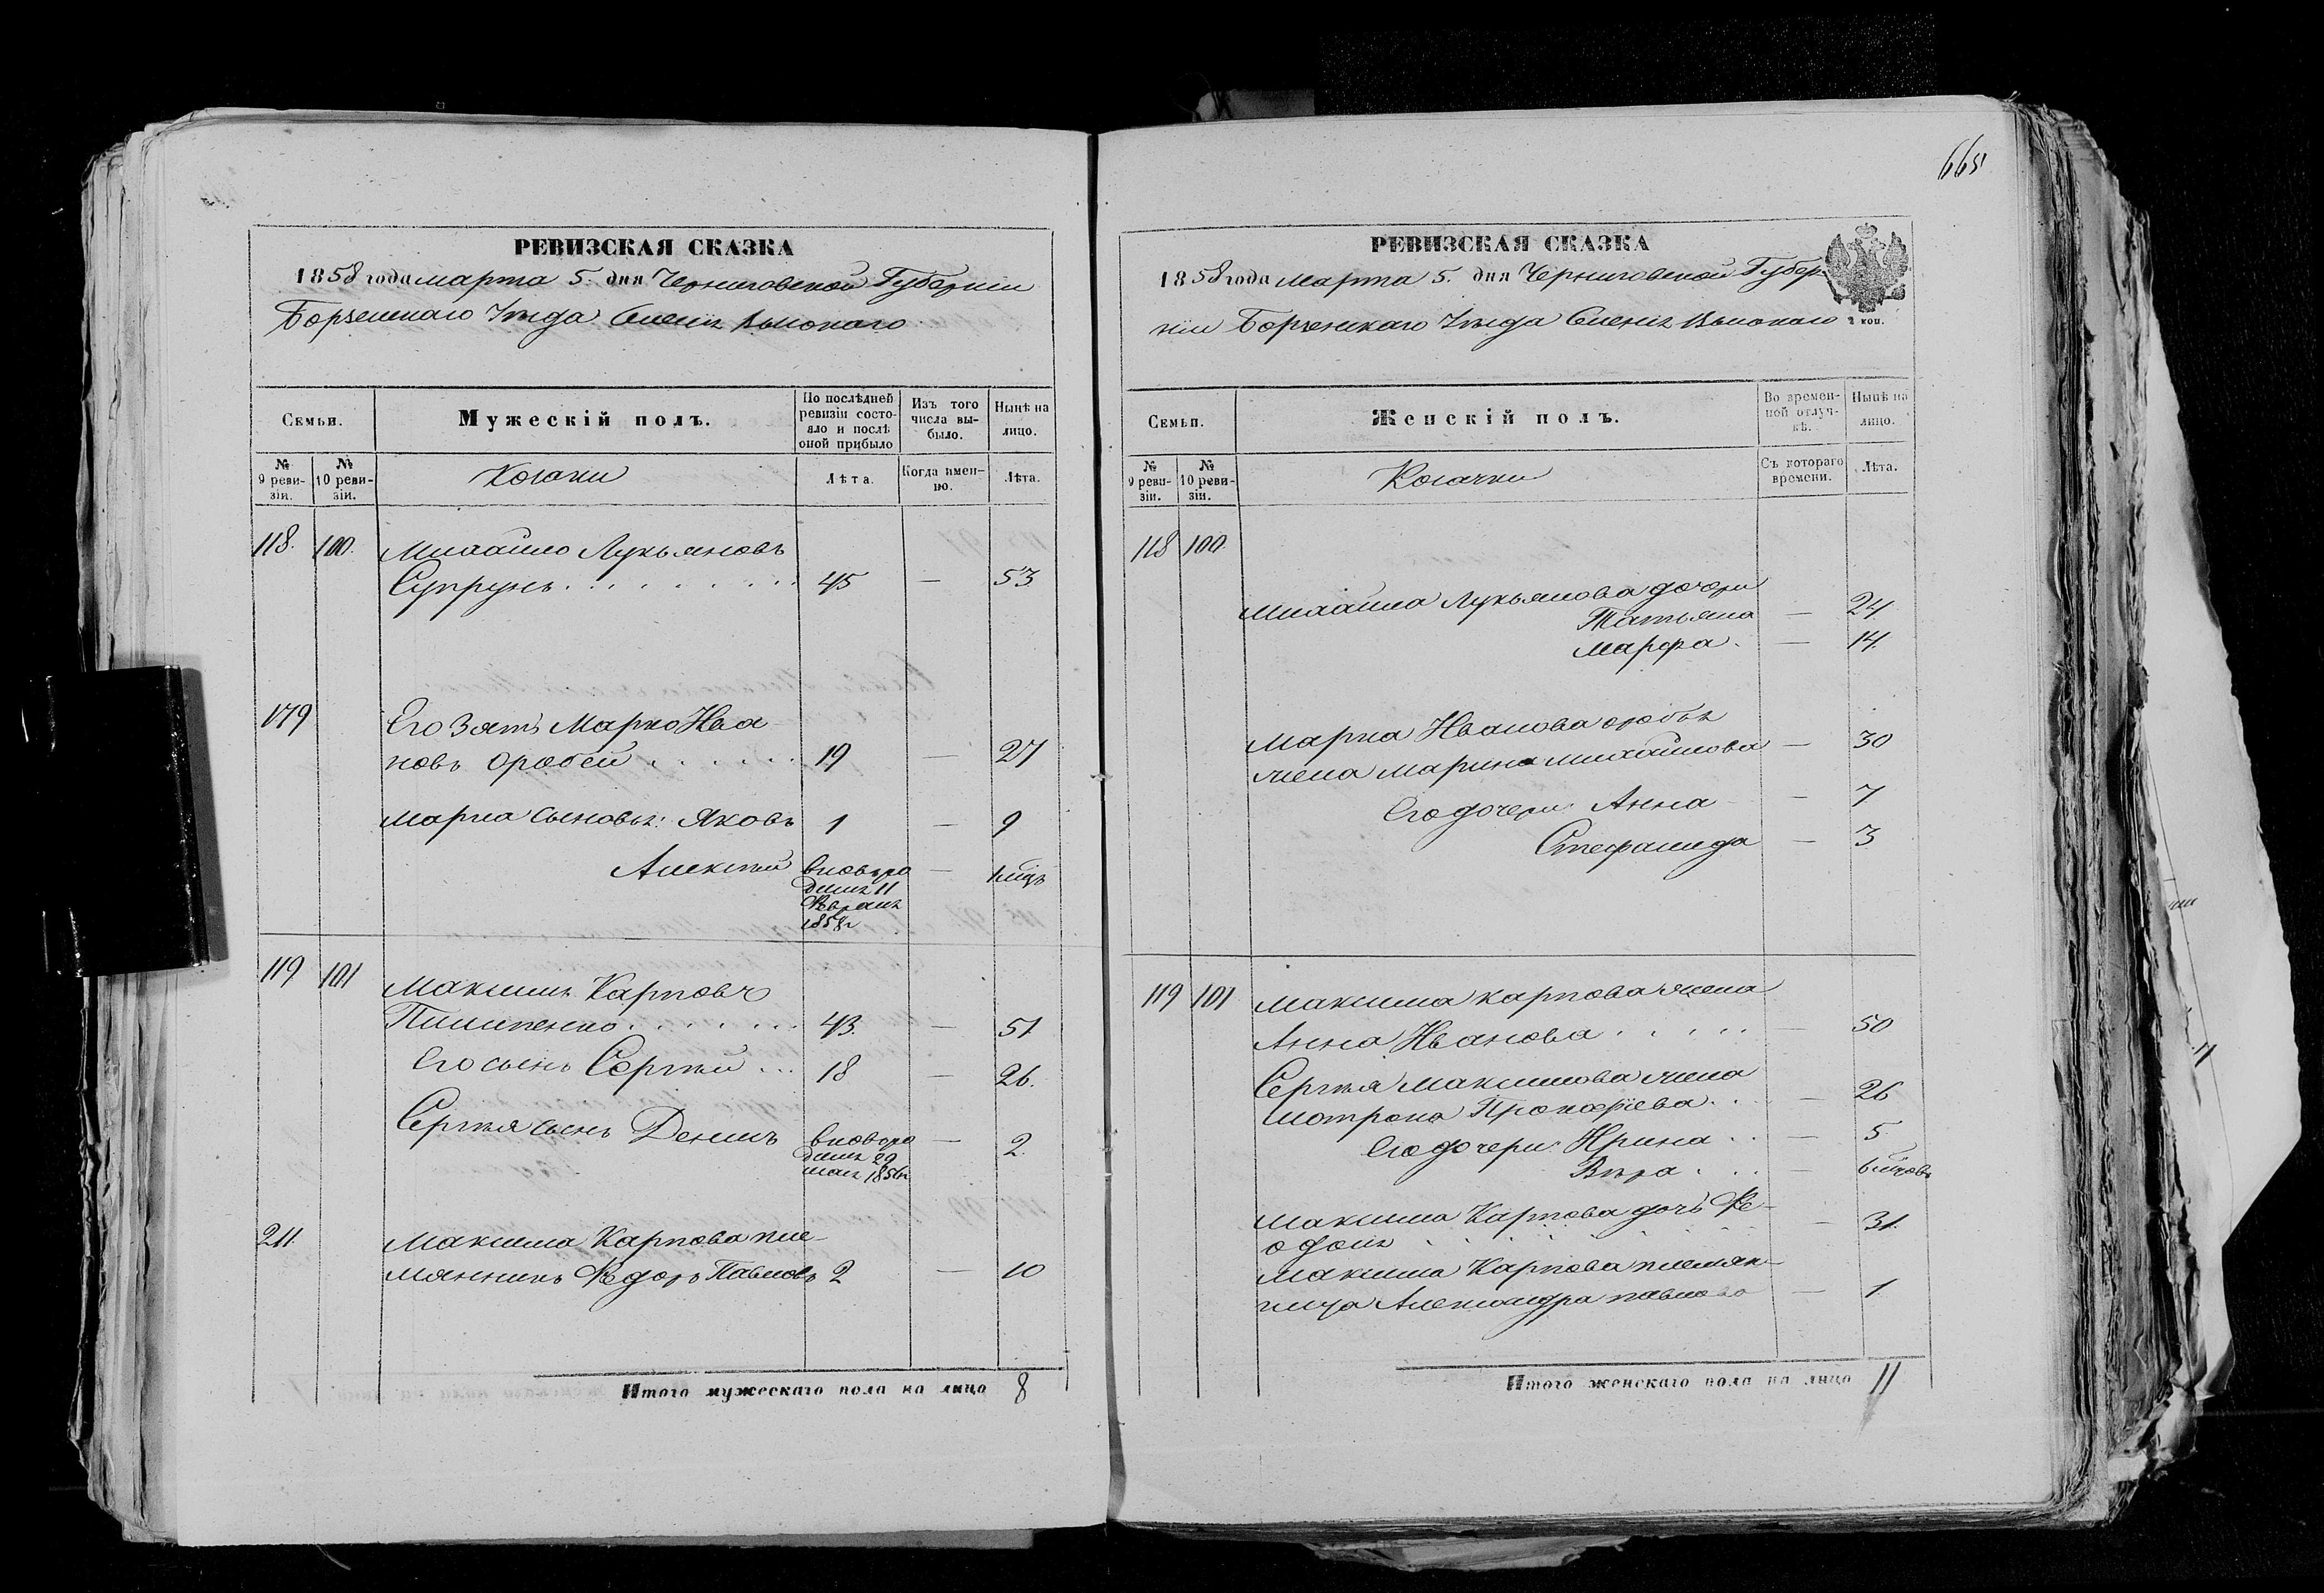 665
РЕВИЗСКАЯ СКАЗКА
1858 года марта 5. дня Черниговской Губерніи
Борзенскаго Уѣзда Высокаго
Семьи.
Мужескій полъ.
По послѣдней ревизіи состояло и послѣ оной прибыло
Изъ того числа выбыло.
Нынѣ на лицо.
№ 9 ревизіи.
№ 10 ревизіи.
Козаки
Лѣта.
Когда именно.
Лѣта.
118. 100. Михайло Лукьяновъ
Супрунъ 45 — 53
179 Его Зять Марко Ива
новъ Оробей 19 — 27
Марка сыновья: Яковъ 1 — 9
Алексѣй вновьро — 1 мцъ
дился 11
Февраля
1858 г
119 101 Максимъ Карповъ
Пилипенко 43. — 51
Его сынъ Сергѣй 18 — 26.
Сергѣя сынъ Денисъ вновьро — 2.
дился 29
мая 1856 г
211. Максима Карпова пле-
мянникъ Федоръ Павловъ 2 — 10
Итого мужескаго пола на лицо 8
РЕВИЗСКАЯ СКАЗКА
1858 года Марта 5. дня Черниговской Губер-
ніи Борзенскаго Уѣзда Высокаго
2 коп.
Семьи.
Женскій полъ.
Во временной отлучкѣ.
Нынѣ на лицо.
№ 9 ревизіи.
№ 10 ревизіи.
Козачки
Съ котораго времени.
Лѣта.
118 100.
Михайла Лукьянова дочери
Татьяна — 24
Марфа. — 14.
Марка Иванова Оробья
жена Марина Михайлова — 30
Его дочери: Анна — 7
Стефанида — 3
119 101 Максима Карпова жена
Анна Иванова — 50
Сергѣя Максимова жена
Мотрона Прокофіева — 26
Его дочери: Ирина — 5
Вѣра — 6 мцовъ
Максима Карпова дочь Фе-
— 31.
Максима Карпова племян-
ница Александра Павлова — 1
Итого женскаго пола на лицо 11